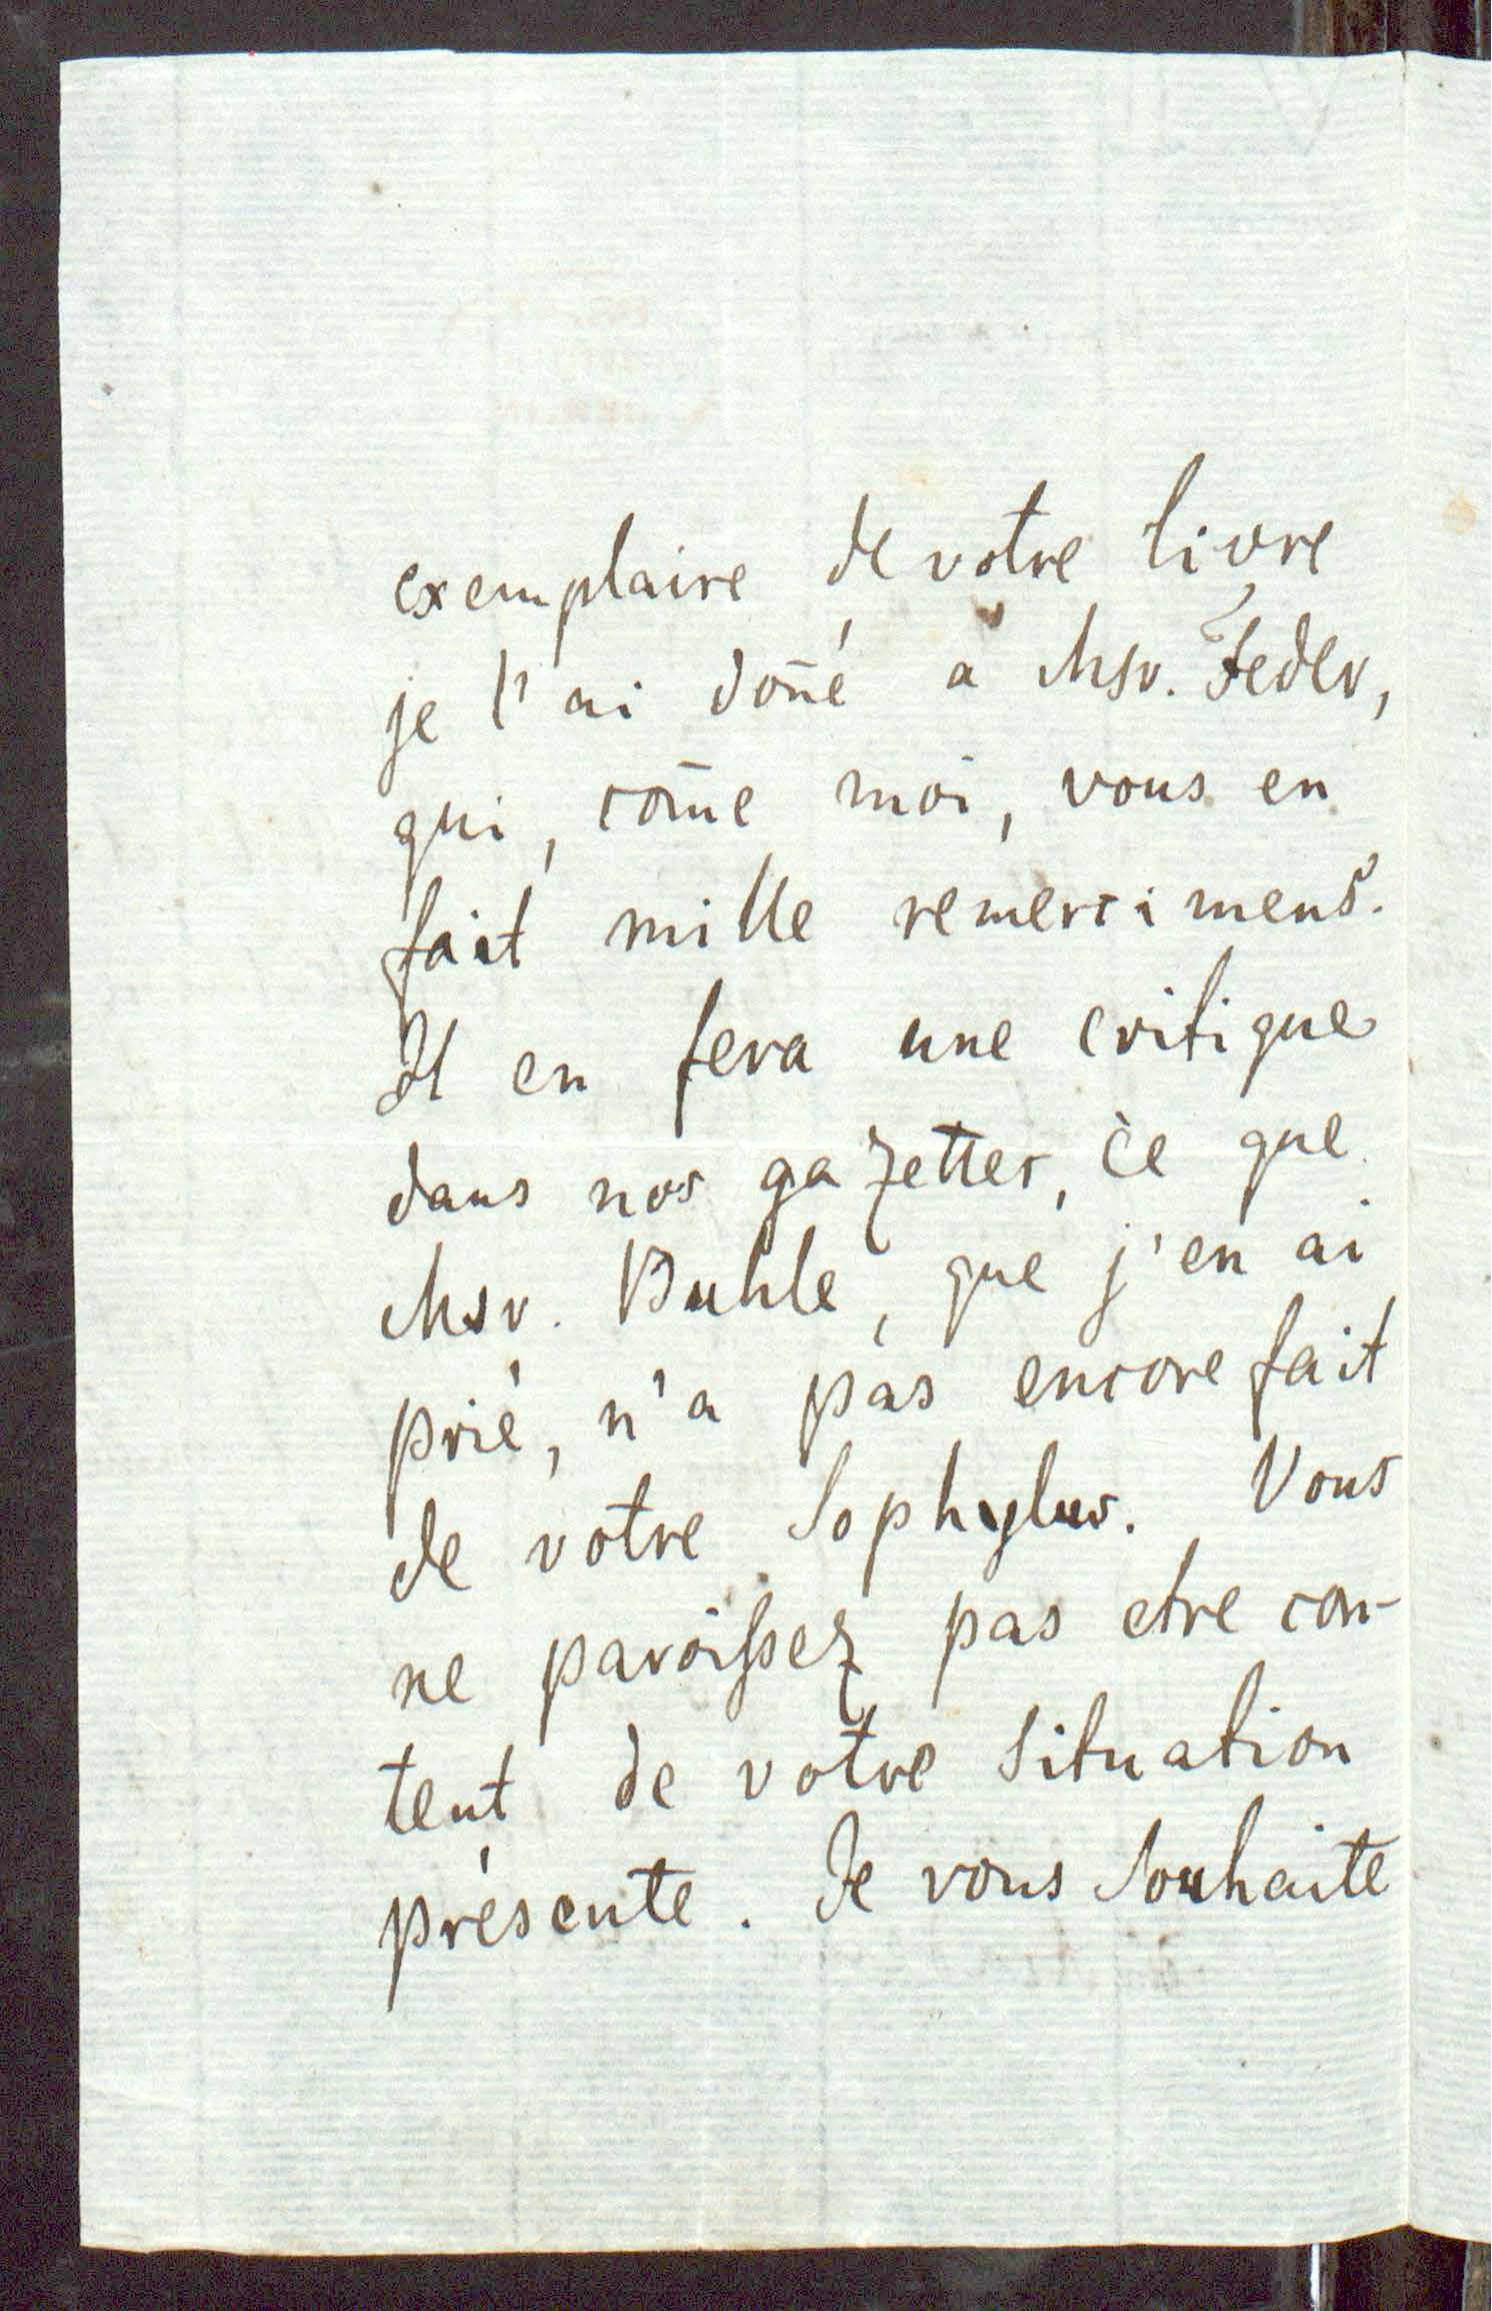 exemplaire de votre livre
je l'ai doñé a Msr. Feder,
qui, com̄e moi, vous en
fait mille remercimens.
Il en fera une critique
dans nos gazettes, ce que
Msr. Buhle, que j'en ai
prié, n'a pas encore fait
de votre Sophylus. Vous
ne paroissez pas etre con-
tent de votre situation
présente. Je vous souhaite